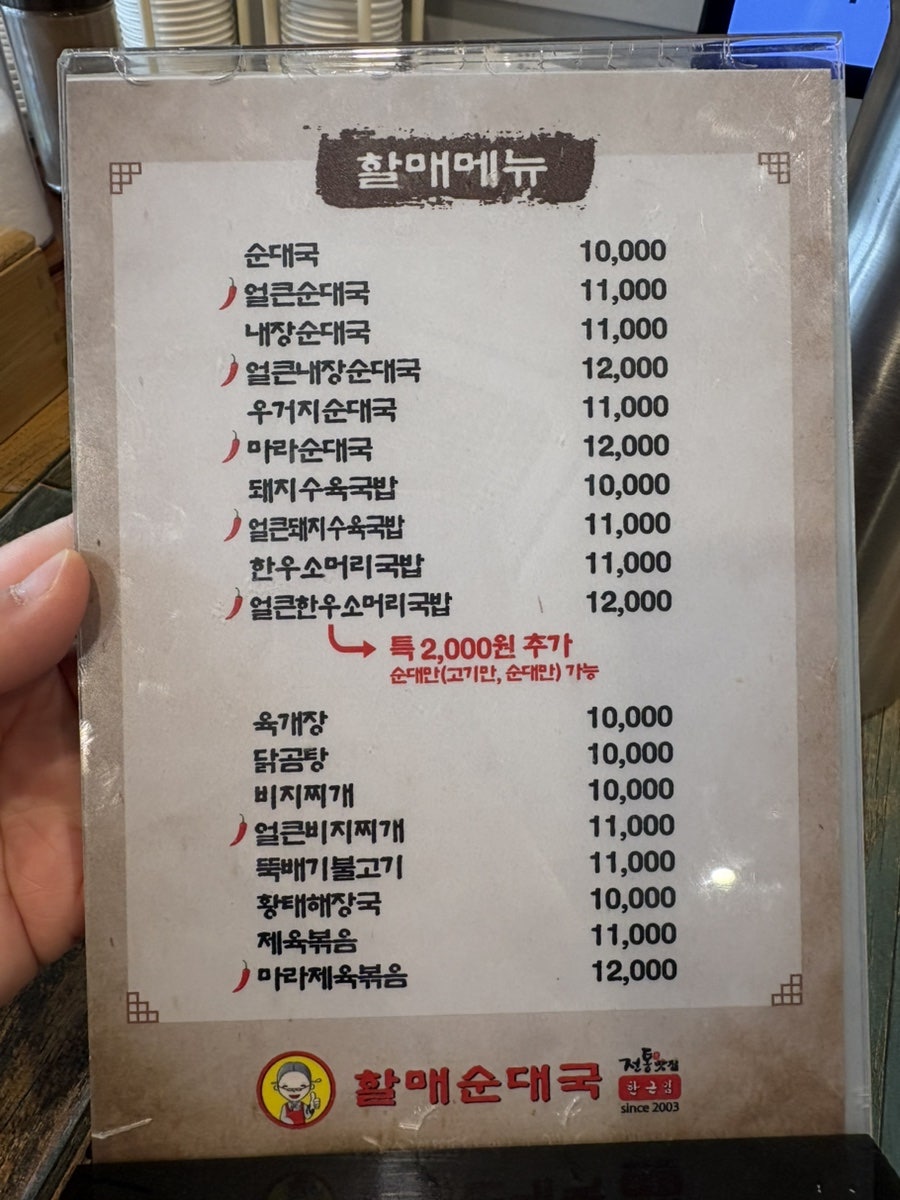 할매메뉴
순대국 10,000
얼큰순대국 11,000
내장순대국 11,000
얼큰내장순대국 12,000
우거지순대국 11,000
마라순대국 12,000
돼지수육국밥 10,000
얼큰돼지수육국밥 11,000
한우소머리국밥 11,000
얼큰한우소머리국밥 12,000
특 2,000원 추가
순대만(고기만, 순대만) 가능
육개장 10,000
닭곰탕 10,000
비지찌개 10,000
얼큰비지찌개 11,000
뚝배기불고기 11,000
황태해장국 10,000
제육볶음 11,000
마라제육볶음 12,000
할매순대국
전통맛집
한근임
since 2003